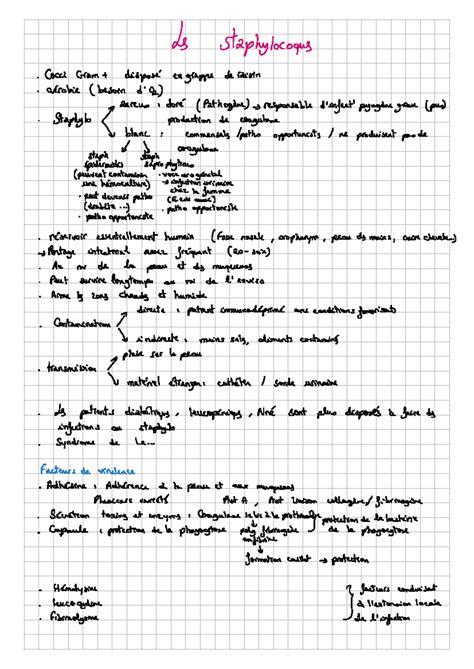 Les Staphylocoques
. Cocci Gram + disposé en grappe de raisin
. aérobie (besoin d'O2)
. Staphylo
aureus : doré (Pathogène) → responsable d'infect° pyogène grave (pus)
production de coagulase
blanc : commensals / patho opportunistes / ne produisent pas de coagulase
staph epidermidis
(peuvent contaminer une hémoculture)
. peut devenir patho (diabète ...)
. patho opportuniste
staph saprophyticus
. voie urogénital
→ infection urinaire chez la femme
. patho opportuniste
. réservoir essentiellement humain (Fosse nasale, oropharynx, peau des mains, cuire chevelu)
→ Portage intestinal assez fréquent (20-30%)
. Au nv de la peau et des muqueuses
. Peut survivre longtemps au nv de l'enviro
. Aime les zones chaudes et humide
. Contamination
directe : patient immunodéprimé avec conditions favorisants
indirecte : mains sales, aliments contaminés
. transmission
plaie sur la peau
matériel étranger : cathéter / sonde urinaire
. Les patients diabétiques, leucopéniques, sont plus disposés à faire des infections au staphylo
. Syndrome de la...
Facteurs de virulence
. Adhésine : Adhérence à la peau et aux muqueuses
Prot A, Prot liaison collagène / fibrinogène
. Sécrétion toxines et enzymes : Coagulase se lie à la prothrombine
. Capsule : protection de la phagocytose
protection de la bactérie de la phagocytose
formation caillot → protection
. Hémolysine
. leucocydine
. Fibrinolysine
facteurs conduisant
à l'extension locale
de l'infection